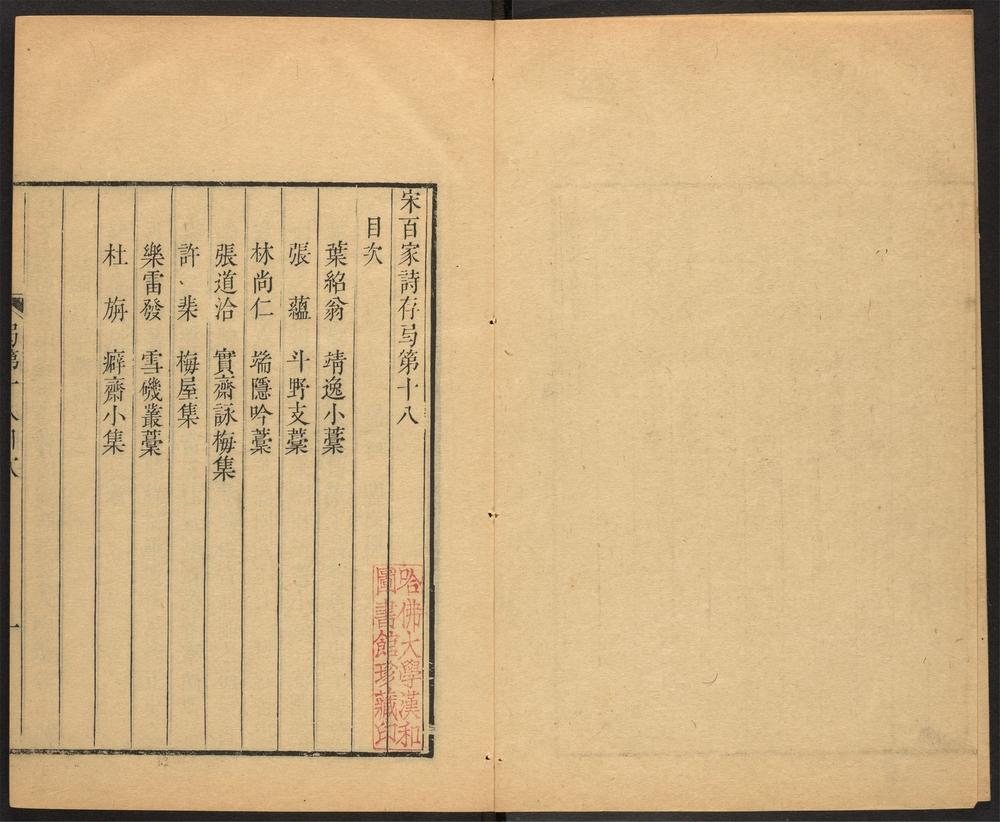 宋百家詩存弓第十八
目次
葉紹翁 靖逸小藁
張蘊 斗野支藁
林尚仁 端隱吟藁
張道洽 實齋詠梅集
許棐 梅屋集
樂雷發 雪磯叢藁
杜旃 癖齋小集
哈佛大學漢和
圖書館珍藏印
弓第十八目次
一